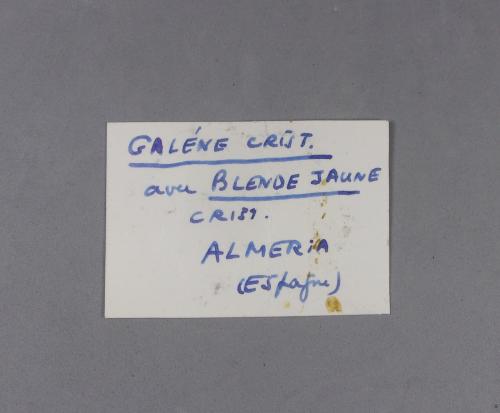 GALÉNE CRIST.
avec BLENDE JAUNE
CRIST.
ALMERIA
(Espagne)